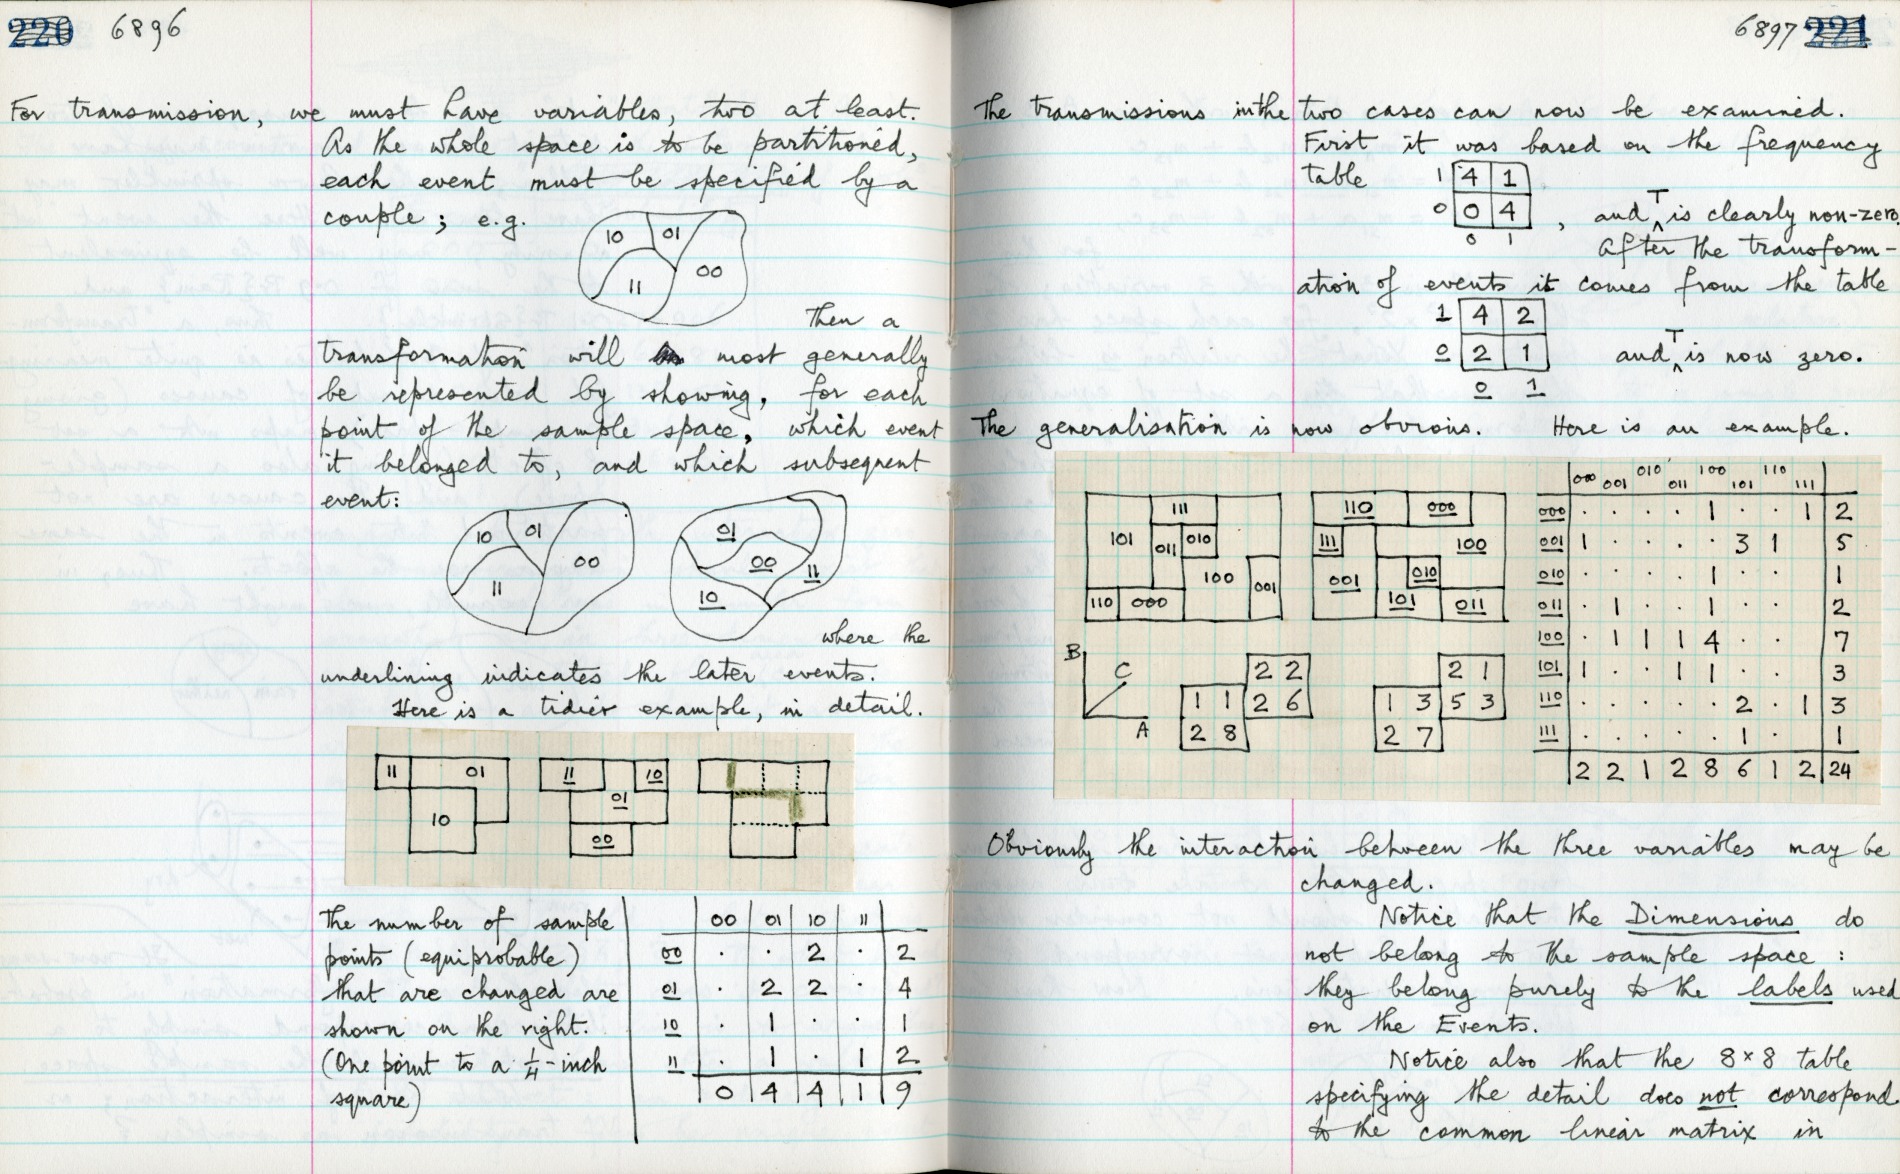 220 6896
For transmission, we must have variables, two at least.
As the whole space is to be partitioned,
each event must be specified by a
couple; e.g.
10 01
00
11
Then a
transformation will most generally
be represented by showing, for each
point of the sample space, which event
it belonged to, and which subsequent
event:
10 01 01
00 00
11 11
10
where the
underlining indicates the later events.
Here is a tidier example, in detail.
11 01 11 10
01
10
00
The number of sample
points (equiprobable)
that are changed are
shown on the right.
(One point to a ¼-inch
square)
00 01 10 11
00 . . 2 . 2
01 . 2 2 . 4
10 . 1 . . 1
11 . 1 . 1 2
0 4 4 1 9
6897 221
The transmissions in the two cases can now be examined.
First it was based on the frequency
table
1 4 1
0 0 4
0 1
, and T is clearly non-zero.
After the transform-
ation of events it comes from the table
1 4 2
0 2 1
0 1
and T is now zero.
The generalisation is now obvious. Here is an example.
111
101 011 010
100 001
110 000
110 000
111 100
001 010
101 011
B
C
A
2 2
1 1 2 6
2 8
2 1
1 3 5 3
2 7
000 001 010 011 100 101 110 111
000 . . . . 1 . . 1 2
001 1 . . . . 3 1 5
010 . . . . 1 . . 1
011 . 1 . . 1 . . 2
100 . 1 1 1 4 . . 7
101 1 . . 1 1 . . 3
110 . . . . . 2 . 1 3
111 . . . . . 1 . 1
2 2 1 2 8 6 1 2 24
Obviously the interaction between the three variables may be
changed.
Notice that the Dimensions do
not belong to the sample space :
they belong purely to the labels used
on the Events.
Notice also that the 8 × 8 table
specifying the detail does not correspond
to the common linear matrix in